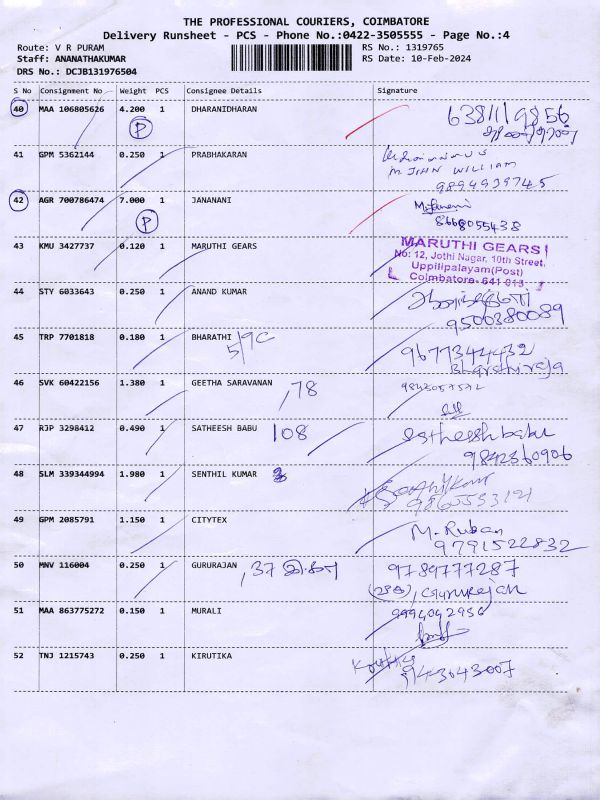 THE PROFESSIONAL COURIERS, COIMBATORE
Delivery Runsheet - PCS - Phone No.:0422-3505555 - Page No.:4
Route: V R PURAM
Staff: ANANATHAKUMAR
DRS No.: DCJB131976504
RS No.: 1319765
RS Date: 10-Feb-2024
S No Consignment No Weight PCS Consignee Details Signature
40 MAA 106805626 4.200 1 DHARANIDHARAN
P
41 GPM 5362144 0.250 1 PRABHAKARAN
M JOHN WILLIAM
9894939745
42 AGR 700786474 7.000 1 JANANANI
P
8668055438
43 KMU 3427737 0.120 1 MARUTHI GEARS
MARUTHI GEARS
No: 12, Jothi Nagar, 10th Street,
Uppilipalayam(Post)
Coimbatore- 641 015
44 STY 6033643 0.250 1 ANAND KUMAR
9500380089
45 TRP 7701818 0.180 1 BHARATHI 5/9C
9677344432
Bharathiraja
46 SVK 60422156 1.380 1 GEETHA SARAVANAN ,78
47 RJP 3298412 0.490 1 SATHEESH BABU 108
Satheesh babu
9842360906
48 SLM 339344994 1.980 1 SENTHIL KUMAR
49 GPM 2085791 1.150 1 CITYTEX
M. Ruban
9791522832
50 MNV 116004 0.250 1 GURURAJAN ,37
9789777287
Gururajan
51 MAA 863775272 0.150 1 MURALI
9994092956
52 TNJ 1215743 0.250 1 KIRUTIKA
9443643007